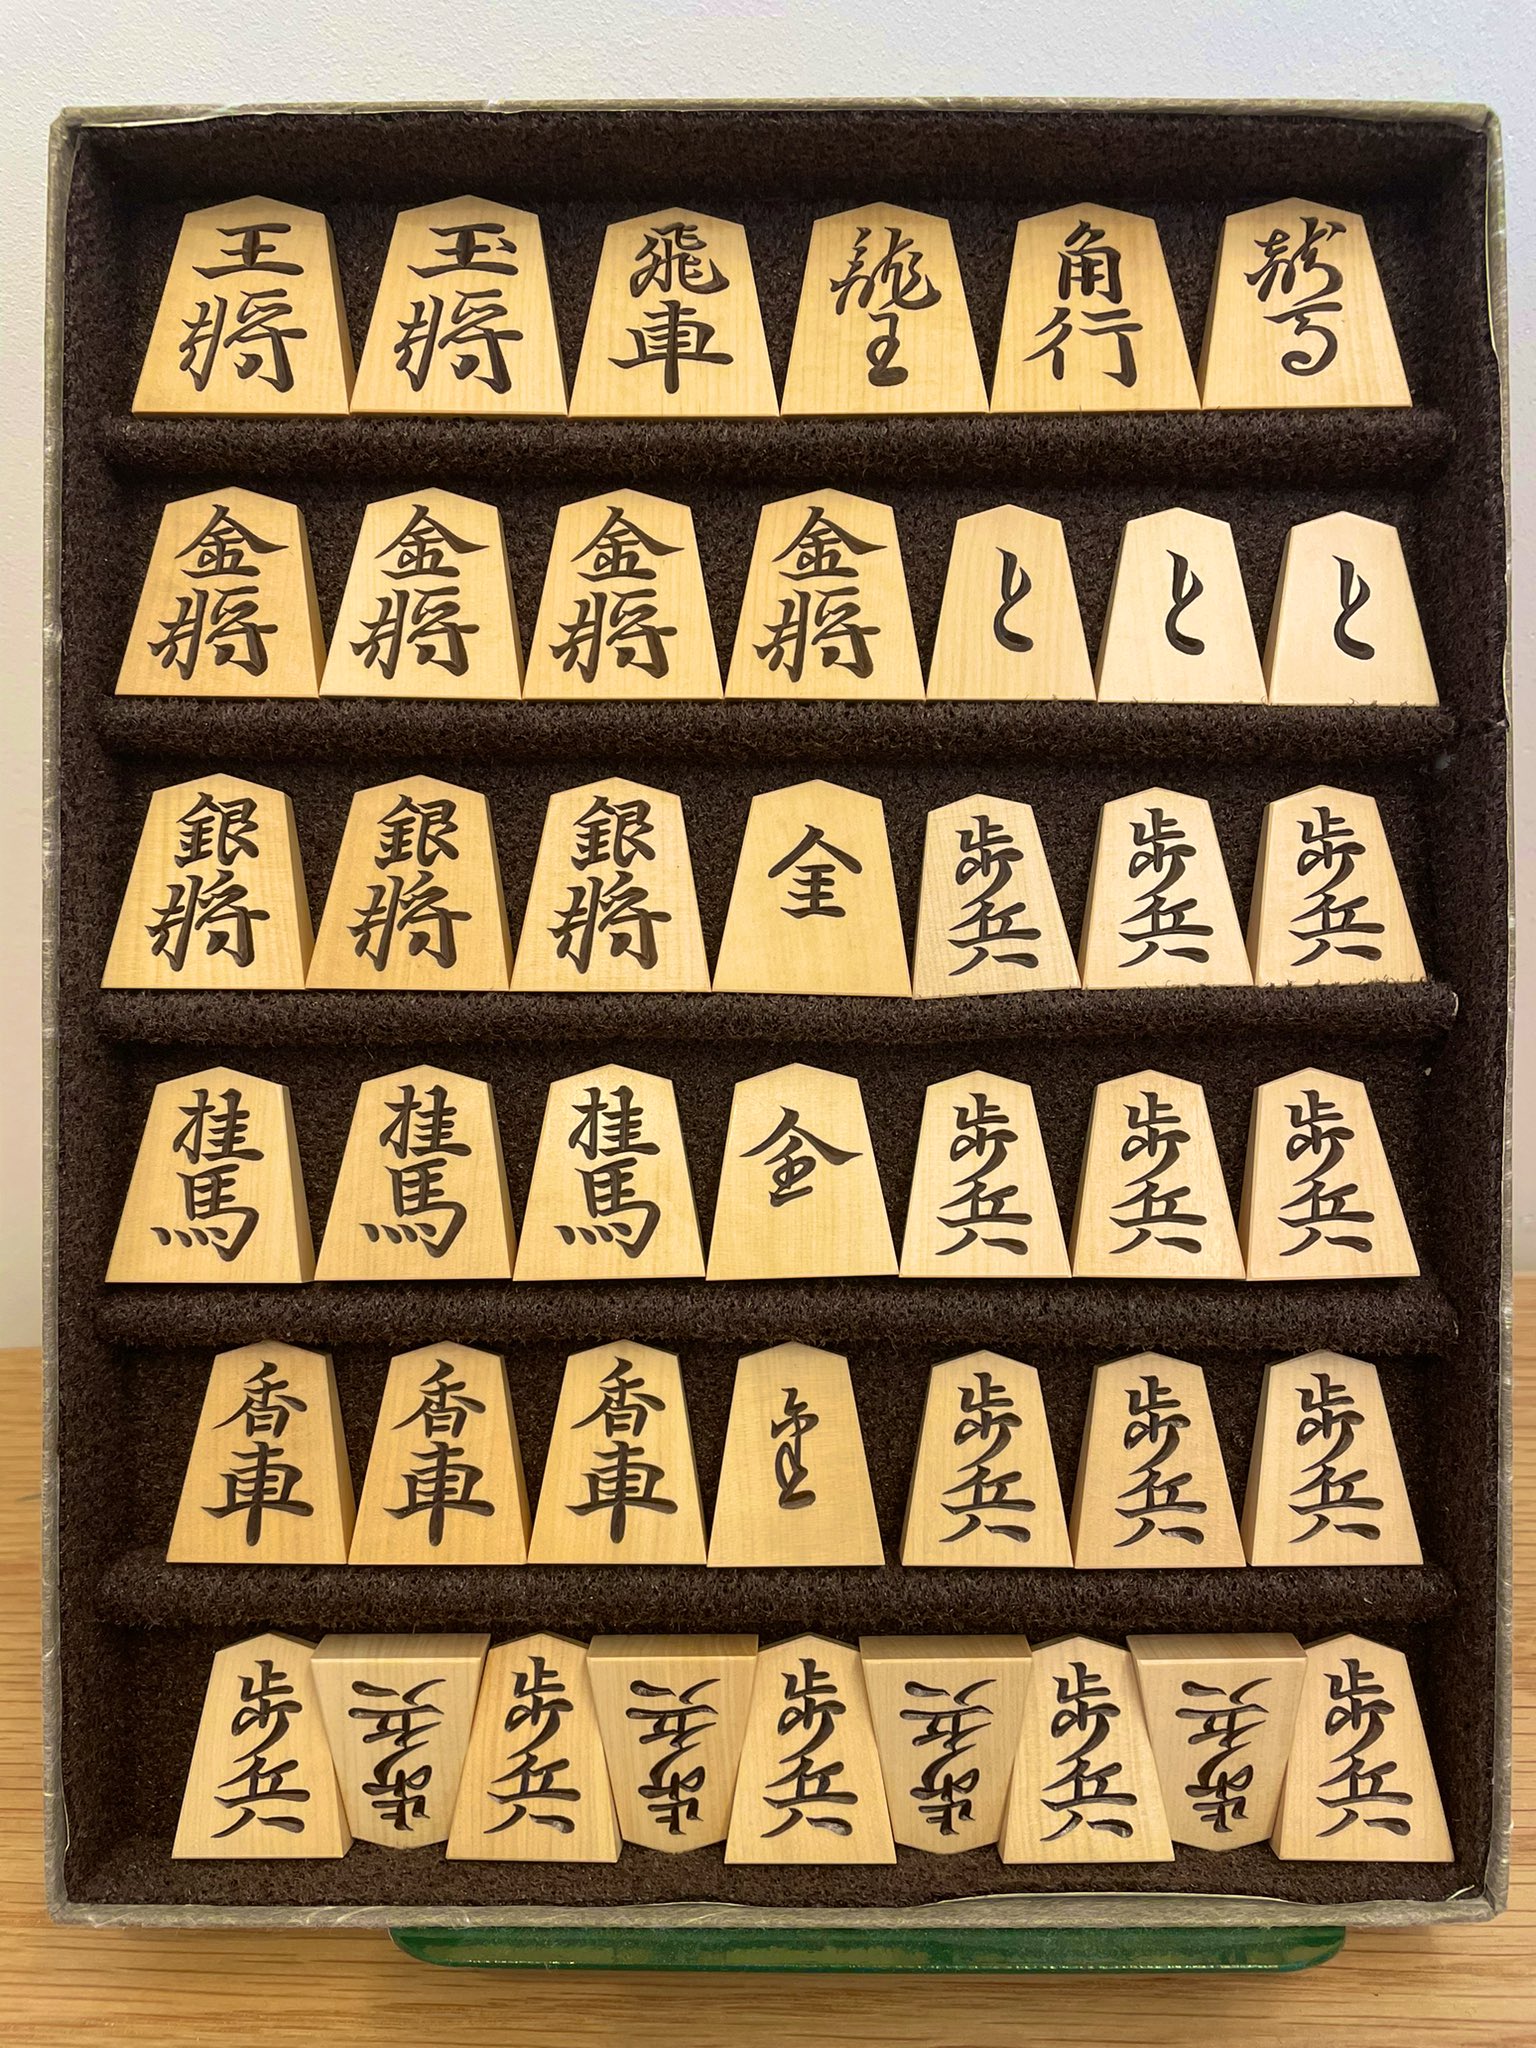 王将 玉将 飛車 龍王 角行 龍馬
金将 金将 金将 金将 と と と
銀将 銀将 銀将 全 歩兵 歩兵 歩兵
桂馬 桂馬 桂馬 全 歩兵 歩兵 歩兵
香車 香車 香車 歩兵 歩兵 歩兵
歩兵 歩兵 歩兵 歩兵 歩兵 歩兵 歩兵 歩兵 歩兵